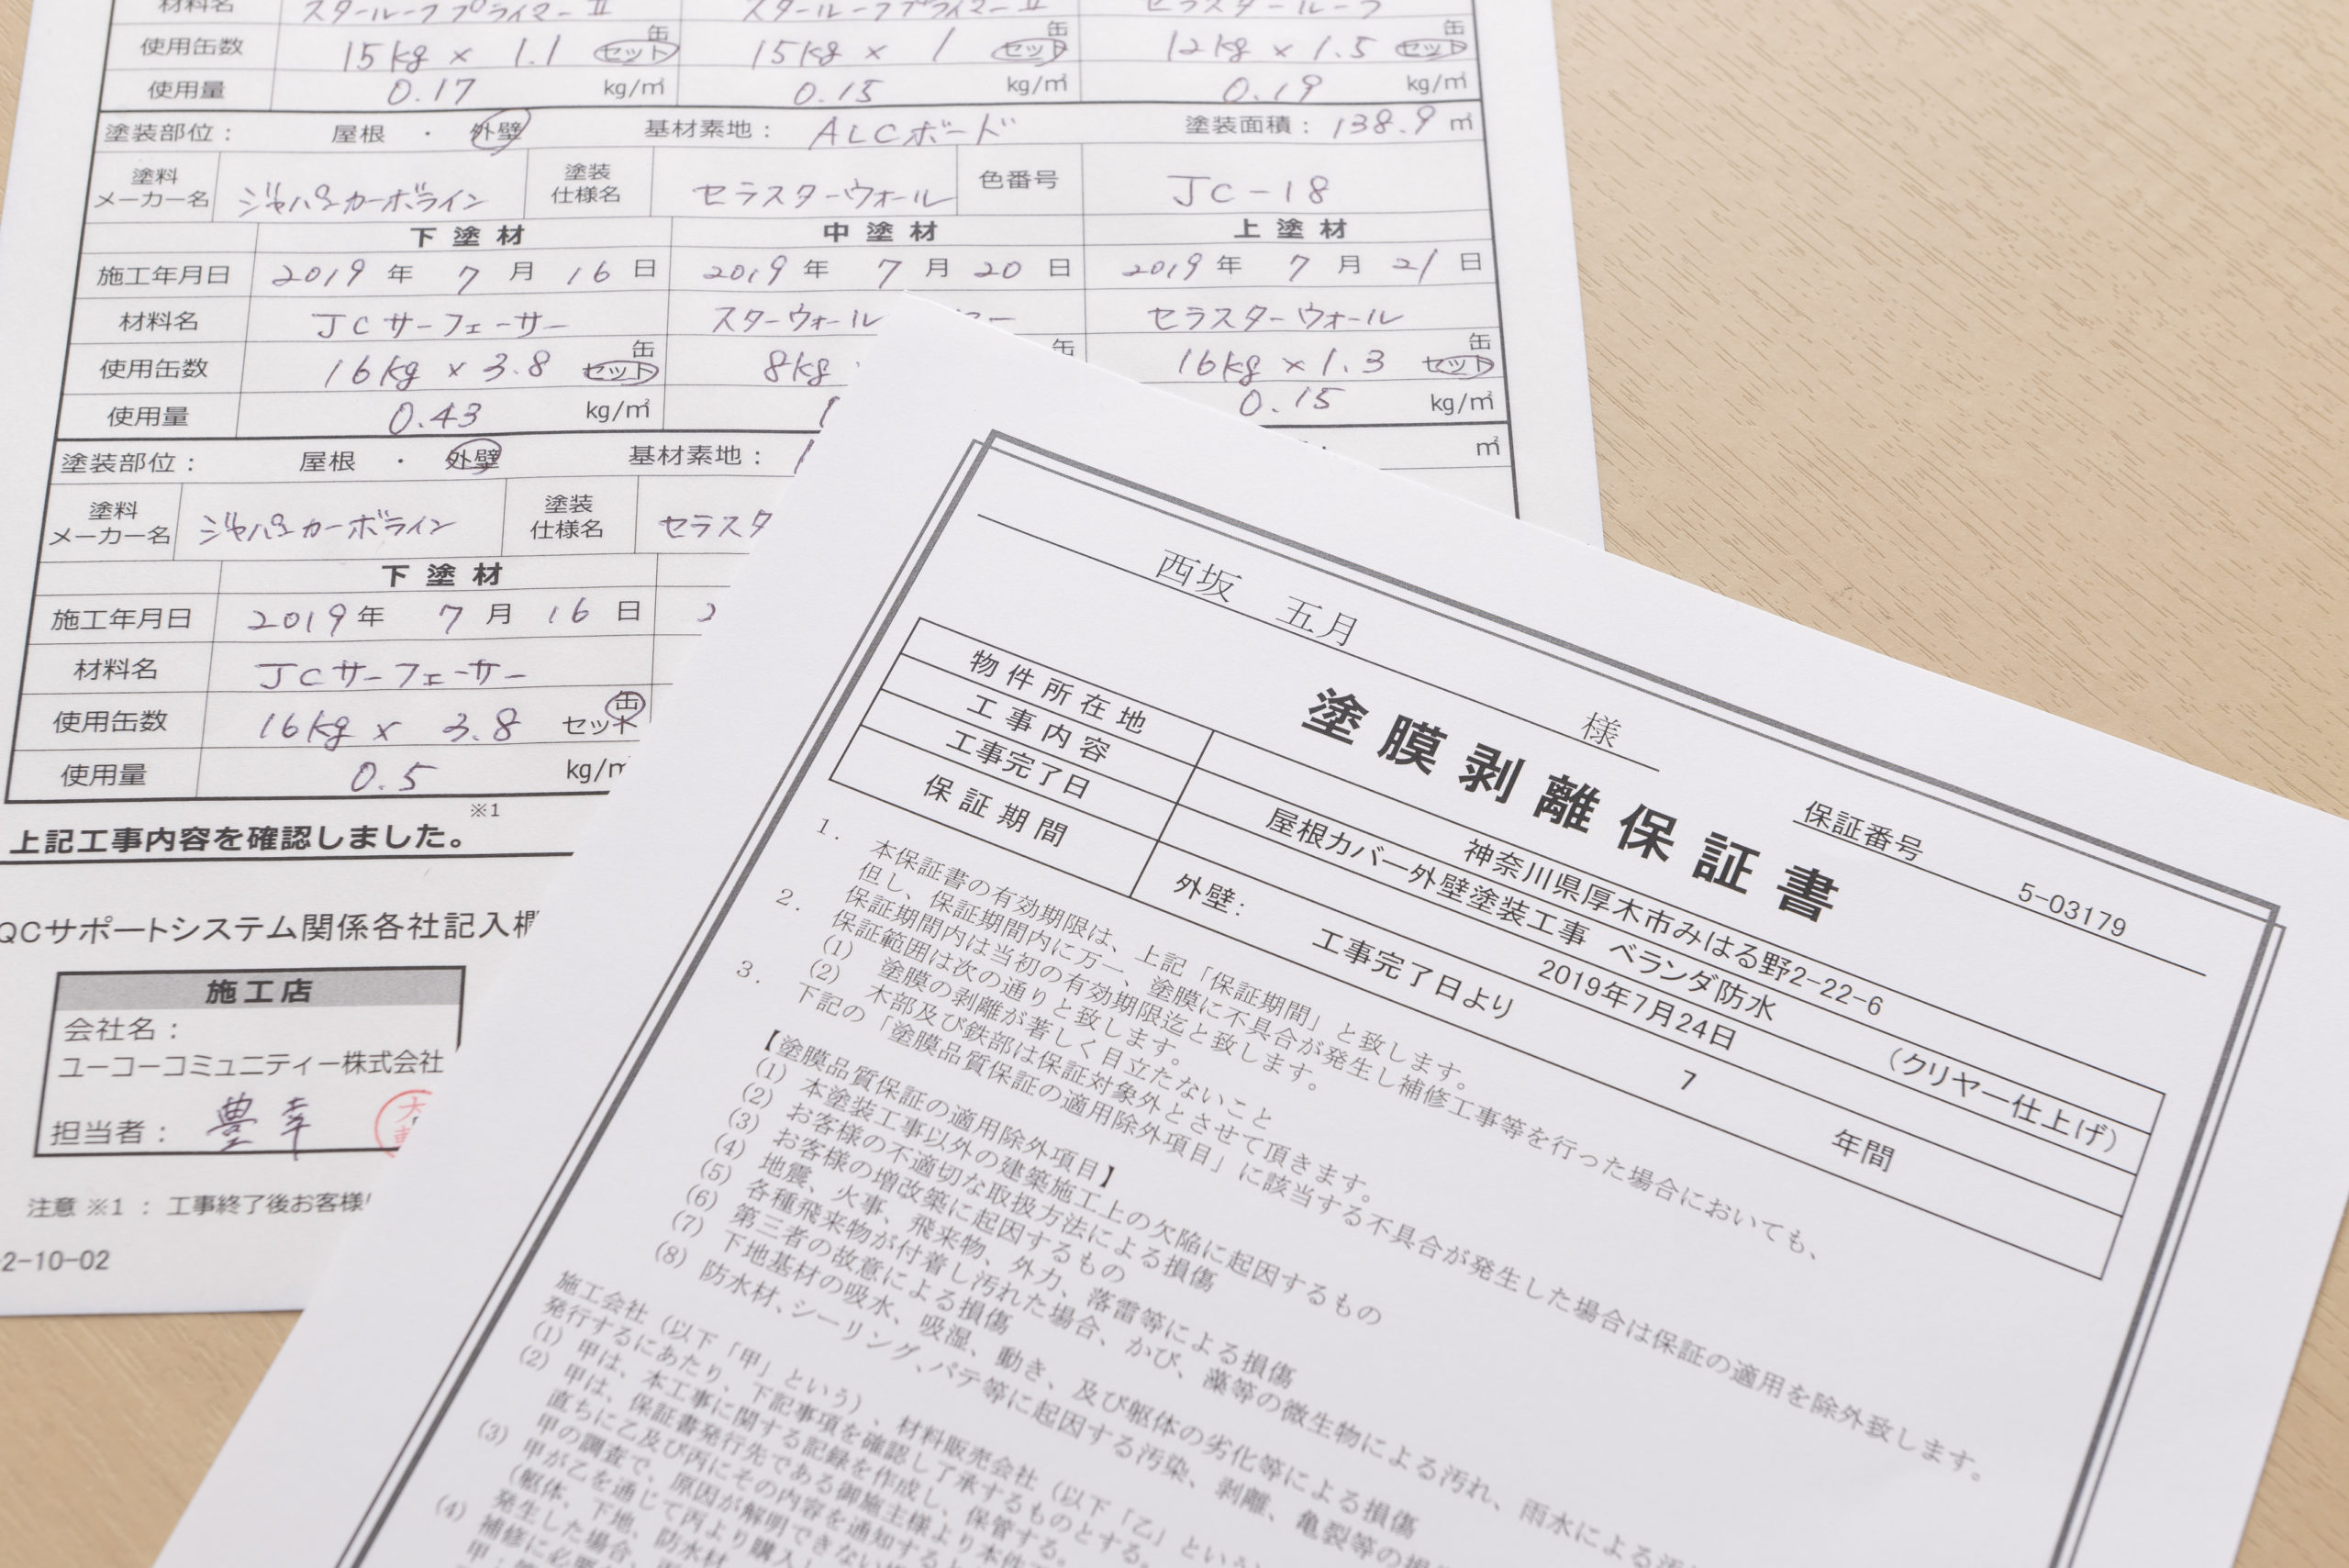 材料名 スタールーフプライマーⅡ スタールーフプライマーⅡ セラスタールーフ
使用缶数 15kg × 1.1 缶 セット 15kg × 1 缶 セット 12kg × 1.5 缶 セット
使用量 0.17 kg/㎡ 0.15 kg/㎡ 0.19 kg/㎡
塗装部位： 屋根 ・ 外壁 基材素地： ALCボード 塗装面積： 138.9 ㎡
塗料メーカー名 ジャパンカーボライン 塗装仕様名 セラスターウォール 色番号 JC-18
下塗材 中塗材 上塗材
施工年月日 2019 年 7 月 16 日 2019 年 7 月 20 日 2019 年 7 月 21 日
材料名 JCサーフェーサー スターウォール セラスターウォール
使用缶数 16kg × 3.8 缶 セット 8kg 缶 16kg × 1.3 缶 セット
使用量 0.43 kg/㎡ 0.15 kg/㎡
塗装部位： 屋根 ・ 外壁 基材素地： ㎡
塗料メーカー名 ジャパンカーボライン 塗装仕様名 セラスタ
下塗材
施工年月日 2019 年 7 月 16 日 2
材料名 JCサーフェーサー
使用缶数 16kg × 3.8 缶 セット
使用量 0.5 kg/㎡
※1
上記工事内容を確認しました。
QCサポートシステム関係各社記入欄
施工店
会社名：
ユーコーコミュニティー株式会社
担当者： 豊幸
注意 ※1 ： 工事終了後お客様
2-10-02
西坂 五月 様
保証番号 5-03179
塗膜剥離保証書
物件所在地 神奈川県厚木市みはる野2-22-6
工事内容 屋根カバー外壁塗装工事 ベランダ防水 (クリヤー仕上げ)
工事完了日 2019年7月24日
保証期間 外壁: 工事完了日より 7 年間
1. 本保証書の有効期限は、上記「保証期間」と致します。
但し、保証期間内に万一、塗膜に不具合が発生し補修工事等を行った場合においても、
保証期間内は当初の有効期限迄と致します。
2. 保証範囲は次の通りと致します。
(1) 塗膜の剥離が著しく目立たないこと
(2) 木部及び鉄部は保証対象外とさせて頂きます。
3. 下記の「塗膜品質保証の適用除外項目」に該当する不具合が発生した場合は保証の適用を除外致します。
【塗膜品質保証の適用除外項目】
(1) 本塗装工事以外の建築施工上の欠陥に起因するもの
(2) お客様の不適切な取扱方法による損傷
(3) お客様の増改築に起因するもの
(4) 地震、火事、飛来物、外力、落雷等による損傷
(5) 各種飛来物が付着し汚れた場合、かび、藻等の微生物による汚れ、雨水による汚
(6) 第三者の故意による損傷
(7) 下地基材の吸水、吸湿、動き、及び躯体の劣化等による損傷
(8) 防水材、シーリング、パテ等に起因する汚染、剥離、亀裂等の損
施工会社（以下「甲」という）、材料販売会社（以下「乙」という
発行するにあたり、下記事項を確認し了承するものとする。
(1) 甲は、本工事に関する記録を作成し、保管する。
(2) 甲は、保証書発行先である御施主様より本件
直ちに乙及び丙にその内容を通知すると
甲の調査で、原因が解明できない
(3) 甲が乙を通じて丙より購入し
(躯体、下地、防水材
発生した場合、
(4) 補修に必要